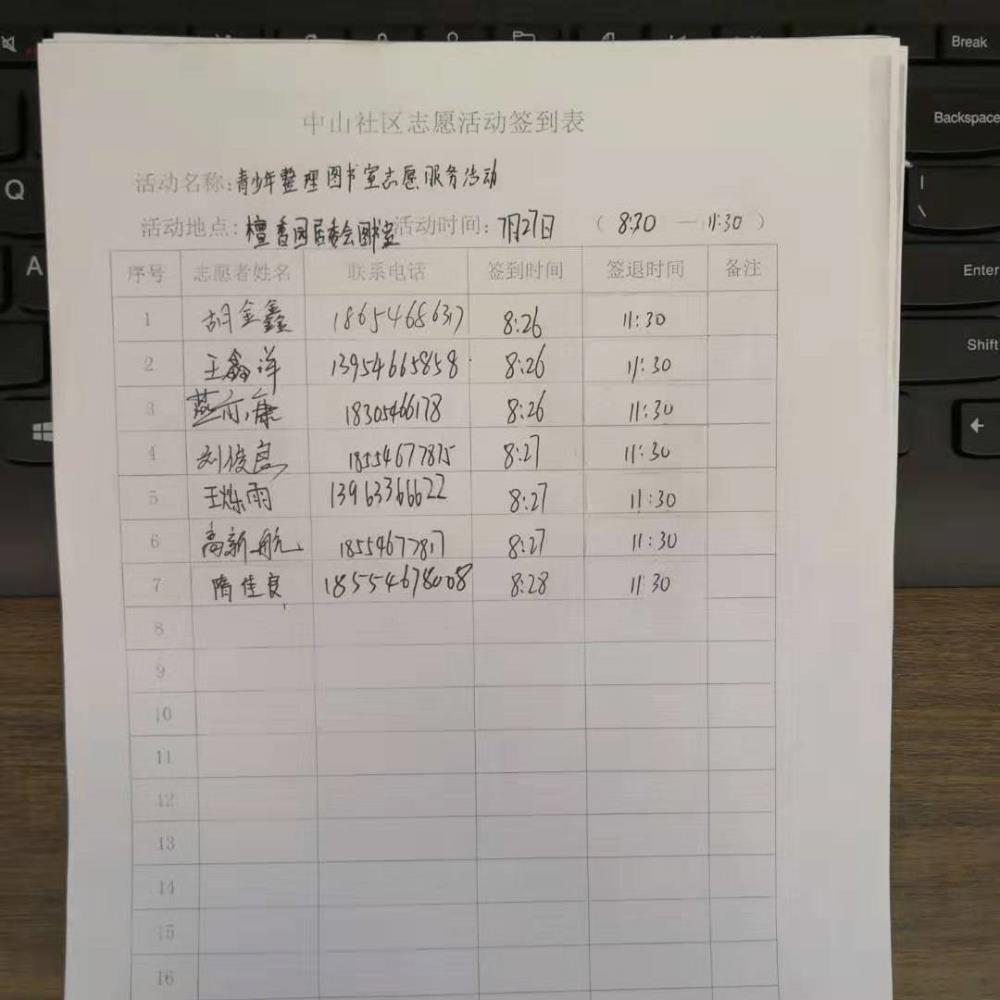 Break
Backspace
Q
A
Enter
Shift
中山社区志愿活动签到表
活动名称:青少年整理图书室志愿服务活动
活动地点:檀香园居委会图书室 活动时间:7月27日 ( 8:30 — 11:30 )
序号 志愿者姓名 联系电话 签到时间 签退时间 备注
1 胡金鑫 18654686317 8:26 11:30
2 王鑫洋 13954665858 8:26 11:30
3 燕 康 18305466178 8:26 11:30
4 刘俊良 18554677875 8:27 11:30
5 王烁雨 13963366622 8:27 11:30
6 高新航 18554677817 8:27 11:30
7 隋佳良 18554678008 8:28 11:30
8
9
10
11
12
13
14
15
16